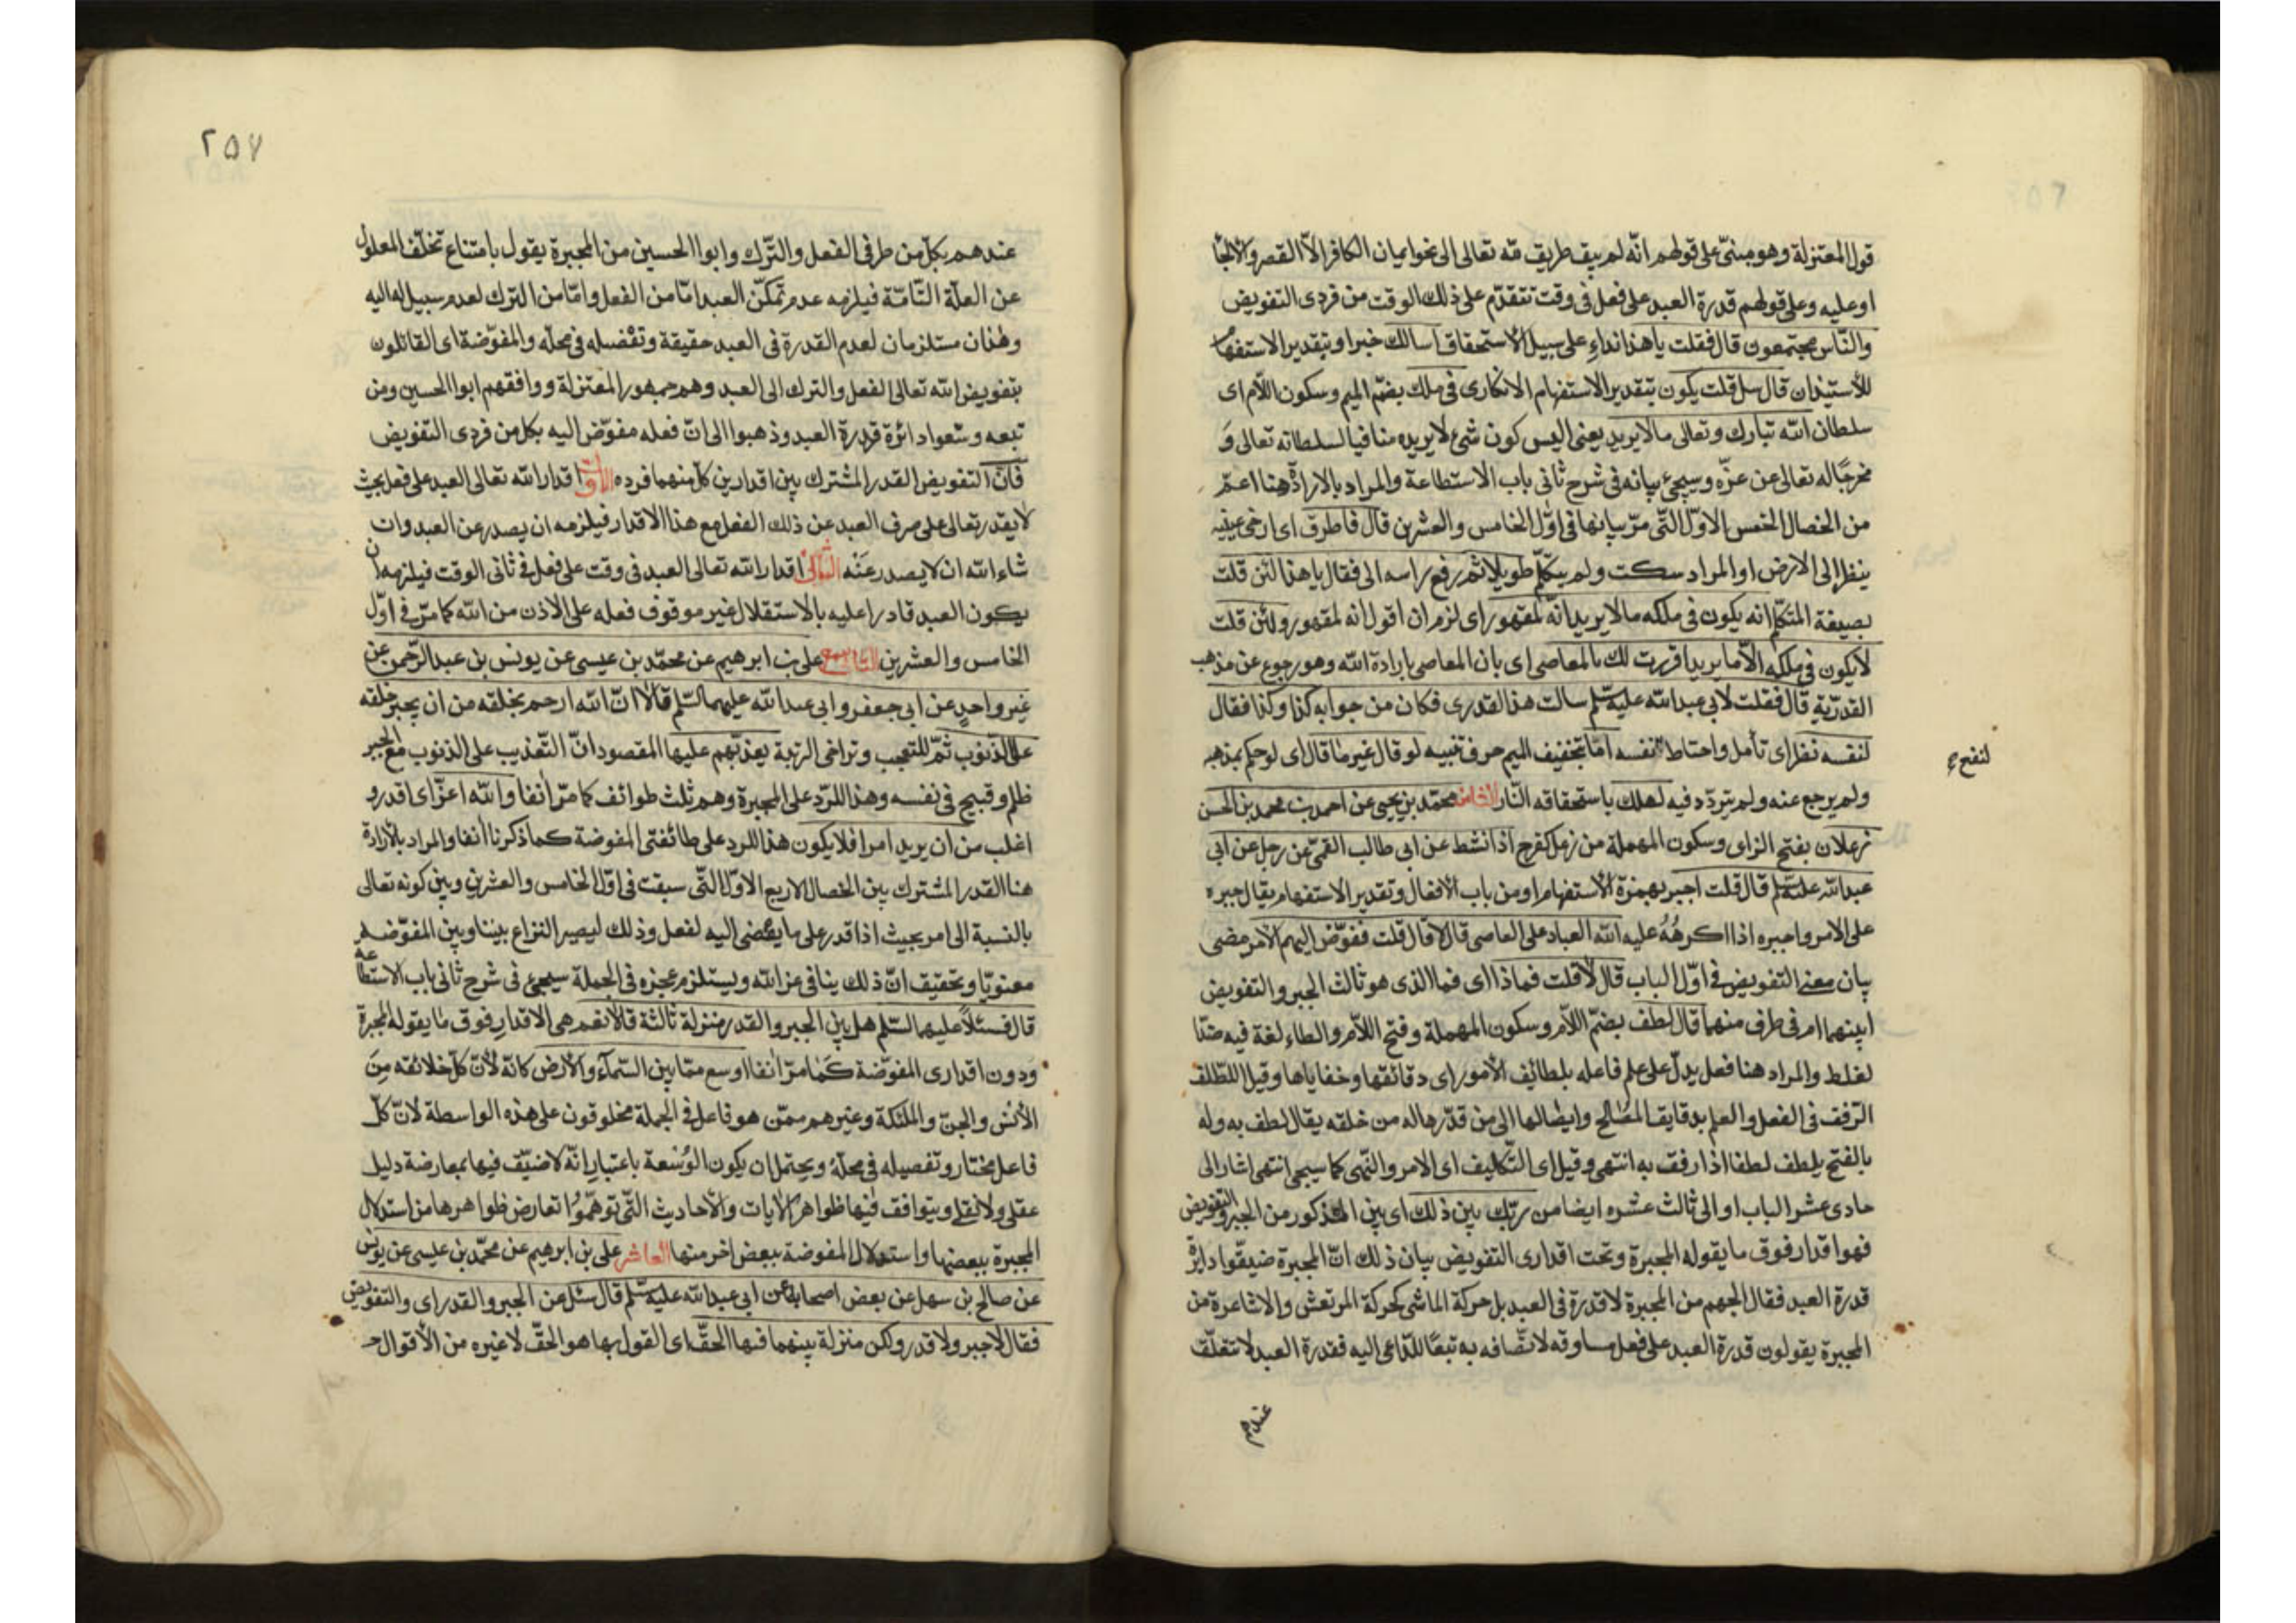 قول المعتزلة وهو مبنىّ على قولهم انّه لم يبق طريق لله تعالى الى نحو ايمان الكافر الاّ القصر والالجا
او عليه وعلى قولهم قدرة العبد على فعل فى وقت تتقدّم على ذلك الوقت من فردى التفويض
والنّاس مجتمعون قال فقلت يا هذا نداء على سبيل الاستحقاق اسالك خبر او بتقدير الاستفهام
للأستيذان قال سل قلت يكون بتقدير الاستفهام الانكارى فى ملك بضمّ الميم وسكون اللام اى
سلطان الله تبارك وتعالى ما لا يريد يعنى اليس كون شئ لا يريده منافيا لسلطانه تعالى وَ
مخرجًا له تعالى عن عزّه وسيجئ بيانه فى شرح ثانى باب الاستطاعة والمراد بالارادة هنا اعمّ
من الخصال الخمس الاوّل التّى مرّ بيانها فى اوّل الخامس والعشرين قال فاطرق اى ارخى عينيه
ينظر الى الارض او المراد سكت ولم يتكلّم طويلا ثم رفع راسه الى فقال يا هذا لئن قلت
بصيغة المتكلم انه يكون فى ملكه ما لا يريد انه لمقهور اى لزم ان اقول انه لمقهور ولئن قلت
لا يكون فى ملكه الاّ ما يريد اقررت لك بالمعاصى اى بان المعاصى بارادة الله وهو رجوع عن مذهب
القدريّة قال فقلت لابى عبدالله عليه سلّم سالت هذا القدرى فكان من جوابه كذا وكذا فقال
لنفسه نظر اى تأمل واحتاط لنفسه اما بتخفيف الميم حرف تنبيه لو قال غير ما قال اى لو حكم بمذهبه
لنفع
ولم يرجع عنه ولم يتردّد فيه لهلك باستحقاقه النّار الثامن محمّد بن يحيى عن احمد بن محمد بن الحسن
زعلان بفتح الزاى وسكون المهملة من زعل كفرح اذا نشط عن ابى طالب القمّى عن رجل عن ابى
عبدالله عليه سلم قال قلت اجبر بهمزة الاستفهام او من باب الافعال وتقدير الاستفهام يقال جبره
على الامر واجبره اذا اكرهُهُ عليه الله العباد على المعاصى قال لا قال قلت ففوّض اليهم الامر مضى
بيان معنى التفويض فى اوّل الباب قال لا قلت فما ذا اى فما الذى هو ثالث الجبر والتفويض
ابينهما ام فى طرف منهما قال لطف بضمّ اللاّم وسكون المهملة وفتح اللاّم والطاء لغة فيه ضدّا
لغلط والمراد هنا فعل يدلّ على علم فاعله بلطائف الأمور اى دقائقها وخفاياها وقيل اللطف
الرّفق فى الفعل والعلم بدقايق المصالح وايصالها الى من قدّرها له من خلقه يقال لطف به وله
بالفتح يلطف لطفا اذا رفق به انتهى وقيل اى التّكاليف اى الامر والنّهى كما سيجى انتهى اشار الى
حادى عشر الباب او الى ثالث عشره ايضا من ربّك بين ذلك اى بين المذكور من الجبر والتفويض
فهو اقدار فوق ما يقوله المجبرة وتحت اقدارى التفويض بيان ذلك انّ المجبرة ضيقّوا دايرة
قدرة العبد فقال الجهم من المجبرة لا قدرة فى العبد بل حركة الماشى كحركة المرتعش والاشاعرة من
المجبرة يقولون قدرة العبد على فعل مساوقه لاتّصافه به تبعًا للدّاعى اليه فقدرة العبد لا تتعلّق
عندهم
٢٥٧
عندهم بكلّ من طرفى الفعل والتّرك وابوا الحسين من المجبرة يقول بامتناع تخلّف المعلول
عن العلّة التّامّة فيلزمه عدم تمكّن العبد امّا من الفعل وامّا من الترك لعدم سبيل له اليه
وهذان مستلزمان لعدم القدرة فى العبد حقيقة وتفصيله فى محلّه والمفوّضة اى القائلون
بتفويض الله تعالى الفعل والترك الى العبد وهم جمهور المعتزلة ووافقهم ابوا الحسين ومن
تبعه وسّعوا دائرة قدرة العبد وذهبوا الى انّ فعله مفوّض اليه بكلّ من فردى التفويض
فانّ التفويض القدر المشترك بين اقدارين كلّ منهما فرده الاوّل اقدار الله تعالى العبد على فعل بحيث
لا يقدر تعالى على صرف العبد عن ذلك الفعل مع هذا الاقدار فيلزمه ان يصدر عن العبد وان
شاء الله ان لا يصدر عَنْه الثانى اقدار الله تعالى العبد فى وقت على فعل فى ثانى الوقت فيلزمه ان
يكون العبد قادرا عليه بالاستقلال غير موقوف فعله على الاذن من الله كما مرّ فى اوّل
الخامس والعشرين التاسع على بن ابرهيم عن محمّد بن عيسى عن يونس بن عبد الرّحمن عن
غير واحدٍ عن ابى جعفر وابى عبدالله عليهما السّلم قالا انّ الله ارحم بخلقه من ان يجبر خلقه
على الذّنوب ثمّ للتعجب وتراخى الرتبة يعذبّهم عليها المقصود انّ التّعذيب على الذنوب مع الجبر
ظلم وقبيح فى نفسه وهذا للرّد على المجبرة وهم ثلث طوائف كما مرّ انفا والله اعزّ اى اقدر و
اغلب من ان يريد امرا فلا يكون هذا للرد على طائفتى المفوضة كما ذكرنا انفا والمراد بالارادة
هنا القدر المشترك بين الخصال الاربع الاوّل التّى سبقت فى اوّل الخامس والعشرين وبين كونه تعالى
بالنسبة الى امر بحيث اذا قدر على ما يفضى اليه لفعل وذلك ليصير النزاع بيننا وبين المفوّضة
معنويّا وتحقيق انّ ذلك ينافى عز الله ويستلزم عجزه فى الجملة سيجئ فى شرح ثانى باب الاستطاعة
قال فسئلا عليهما السّلم هل بين الجبر والقدر منزلة ثالثة قالا نعم هى الاقدار فوق ما يقوله المجبرة
ودون اقدارى المفوّضة كما مرّ انفا اوسع ممّا بين السّماء والارض كانّه لأنّ كلّ خلائقه مِنَ
الأنْس والجنّ والملئكة وغيرهم ممّن هو فاعل فى الجملة مخلوقون على هذه الواسطة لانّ كلّ
فاعل مختار وتفصيله فى محلّهْ ويحتمل ان يكون الوُسْعة باعتبار انّه لا ضيّق فيها بمعارضة دليل
عقلى ولا نقلى ويتوافق فيها ظواهر الآيات والأحاديث التّى توهّموا تعارض ظواهرها من استدلال
المجبرة ببعضها واستدلال المفوضة ببعض اخر منها العاشر على بن ابرهيم عن محمّد بن عيسى عن يونس
عن صالح بن سهل عن بعض اصحابه عن ابى عبدالله عليه سلّم قال سئل عن الجبر والقدر اى والتفويض
فقال لا جبر ولا قدر ولكن منزلة بينهما فيها الحقّ اى القول بها هو الحقّ لا غيره من الأقوال